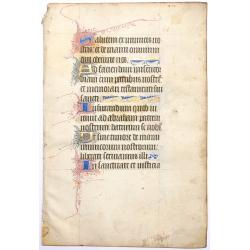 Salutem ex inimicis no
stris: et de manu omnium
qui oderunt nos.
Ad faciendam misericor
diam cum patribus nostris:
et memorari testamenti sui
sancti.
Iusiurandum quod iu
ravit ad abraham patrem
nostrum: daturum se nobis.
Ut sine timore de manu
inimicorum nostrorum:
liberati serviamus illi.
In sanctitate et iusticia